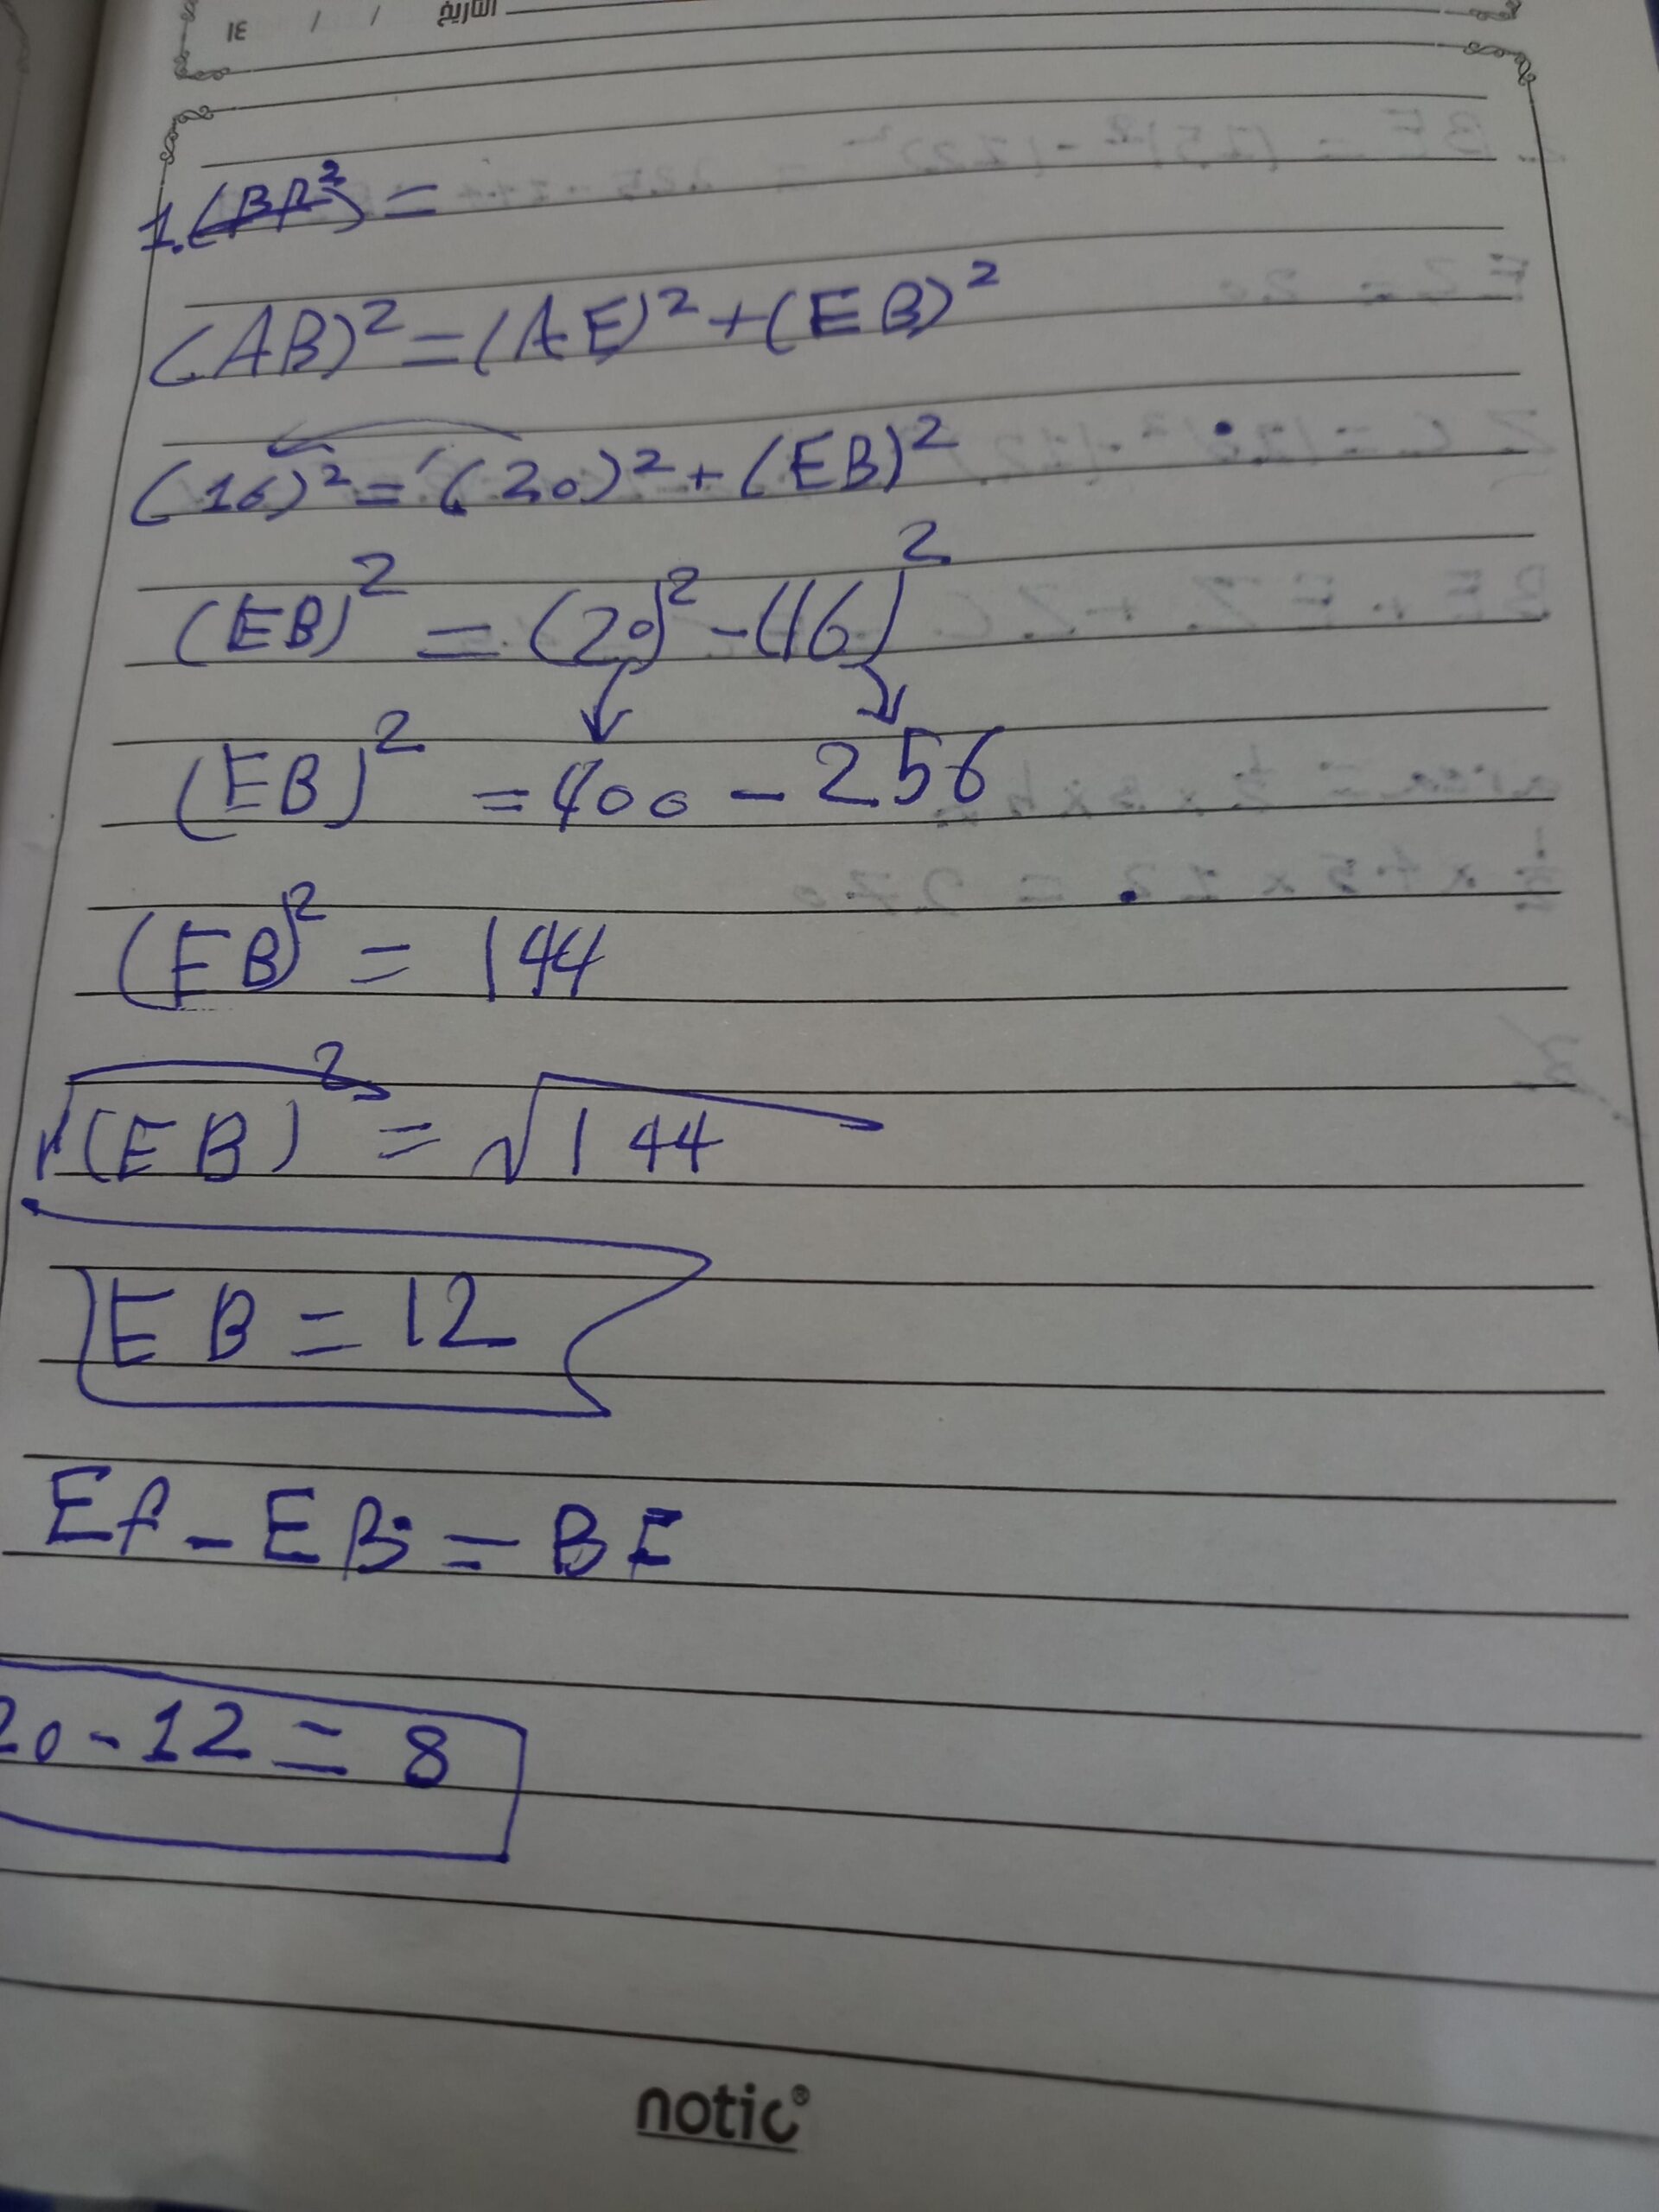 التاريخ / / ١٤
1. (BA²) =
(AB)² = (AE)² + (EB)²
(16)² = (20)² + (EB)²
(EB)² = (20)² - (16)²
(EB)² = 400 - 256
(EB)² = 144
√(EB)² = √144
EB = 12
Ef - EB = BF
20 - 12 = 8
notic®